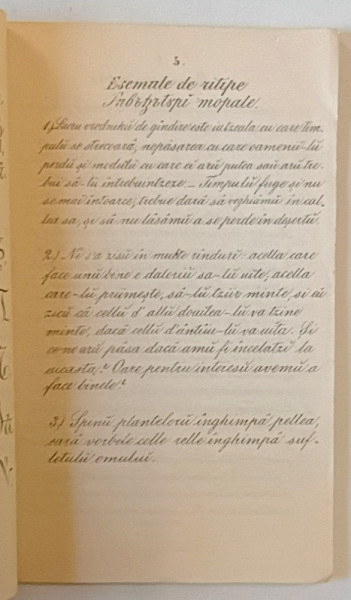 5.
Esemple de citipe
Învъцътурĭ морале.
1.) Lucru vrednicŭ de gîndire este iutzeala cu care tim-
pulŭ se strecoară, nepăsarea cu care oameniĭ-lŭ
perdŭ și modulŭ cu care ei arŭ putea sau arŭ tre-
bui să-lŭ intrebuintzeze. — Timpulŭ fuge și nu
se mai intoarce, trebue dară să veghiămŭ in cal-
lea sa, și să nu lăsămŭ a se perde in deșertŭ.
2.) Ni s'a zisŭ in multe rinduri- acella care
face unŭ bene e datoriŭ sa-lŭ uite, acella
care-lŭ priimește, să-lŭ tziie minte, și eŭ
zicŭ că cellŭ d'allŭ douilea-lŭ va tzine
minte, dacă cellŭ d'intiiu-lŭ va uita. Și
ce ne arŭ păsa dacă amŭ fi incelatzi la
aceasta? Oare pentru interesŭ avemŭ a
face binele?
3.) Spinŭ plantelorŭ inghimpă pellea,
iară vorbele celle relle inghimpă suf-
letulŭ omului.